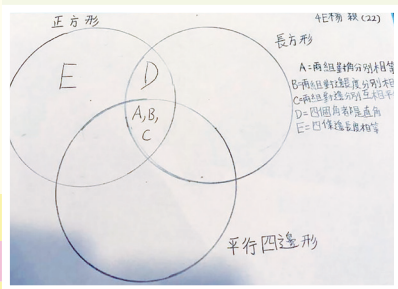 正方形
4E楊 (22)
長方形
A=兩組對角分別相等
B=兩組對邊長度分別相
C=兩組對邊分別互相平
D=四個角都是直角
E=四條邊長度相等
E
D
A,B,
C
平行四邊形